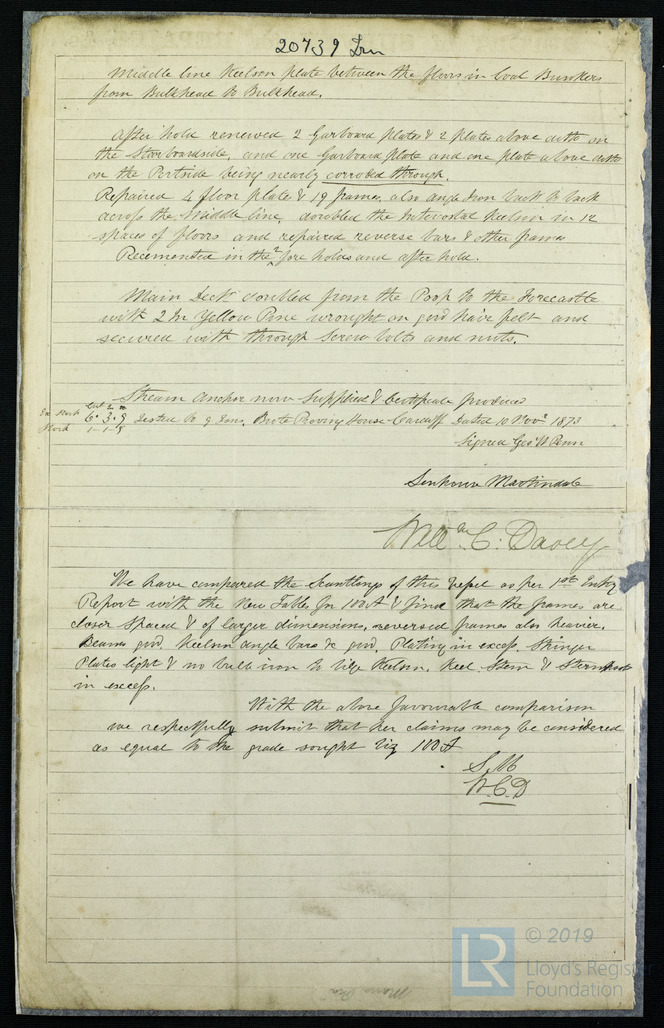 20739 Irn
Middle line Keelson plate between the floors in Coal Bunkers
from Bulkhead to Bulkhead.
After hold renewed 2 Garboard plates & 2 plates above ditto on
the Starboardside, and one Garboard plate and one plate above ditto
on the Portside being nearly corroded through.
Repaired 4 floor plates & 19 frames, also angle Iron back to back
across the Middle line, doubled the Intercostal Keelson in 12
spaces of floors and repaired reverse bars & other frames
Recemented in the 2 fore holds and after hold.
Main Deck doubled from the Poop to the Forecastle
with 2 In Yellow Pine wrought on good hair felt and
secured with through Screw bolts and nuts.
Stream Anchor now Supplied & Certificate produced
Ex Stock 6. 3. 9 Tested to 9 Tons, Bute Proving House Cardiff Dated 10 Novr 1873
Stock 1-1-5
Signed Geo W Penn
Senhouse Martindale
Willm C. Davey
We have compared the Scantlings of this Vessel as per 1st Entry
Report with the New Tables for 100A & find that the frames are
closer Spaced & of larger dimensions, reversed frames also heavier.
Beams good, Keelson angle bars &c good, Plating in excess, Stringer
Plates light & no bulb iron to bilge Keelson. Keel, Stem & Sternpost
in excess.
With the above favourable comparison
we respectfully submit that her claims may be considered
as equal to the grade sought viz 100A
S.M
W.C.D
© 2019
LR
Lloyd's Register
Foundation